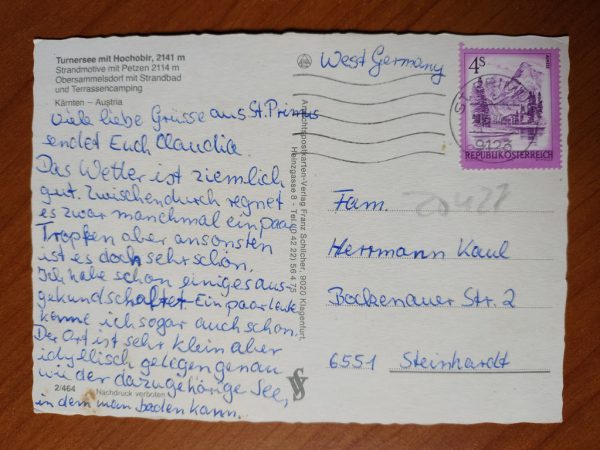 Turnersee mit Hochobir, 2141 m
Strandmotive mit Petzen 2114 m
Obersammelsdorf mit Strandbad
und Terrassencamping
Kärnten – Austria
Viele liebe Grüsse aus St. Primus
sendet Euch Claudia.
Das Wetter ist ziemlich
gut. Zwischendurch regnet
es zwar manchmal ein paar
Tropfen aber ansonsten
ist es doch sehr schön.
Ich habe schon einiges aus-
gekundschaftet. Ein paar Leute
kenne ich sogar auch schon.
Der Ort ist sehr klein aber
idyllisch gelegen genau
wie der dazugehörige See,
in dem man baden kann.
2/464
Nachdruck verboten
Ansichtspostkarten-Verlag Franz Schilcher, 9020 Klagenfurt,
Heinzgasse 8 - Tel. (0 42 22) 56 4 75
West Germany
4 S
REPUBLIK ÖSTERREICH
9123
Fam.
Herrmann Kaul
Bockenauer Str. 2
6551 Steinhardt